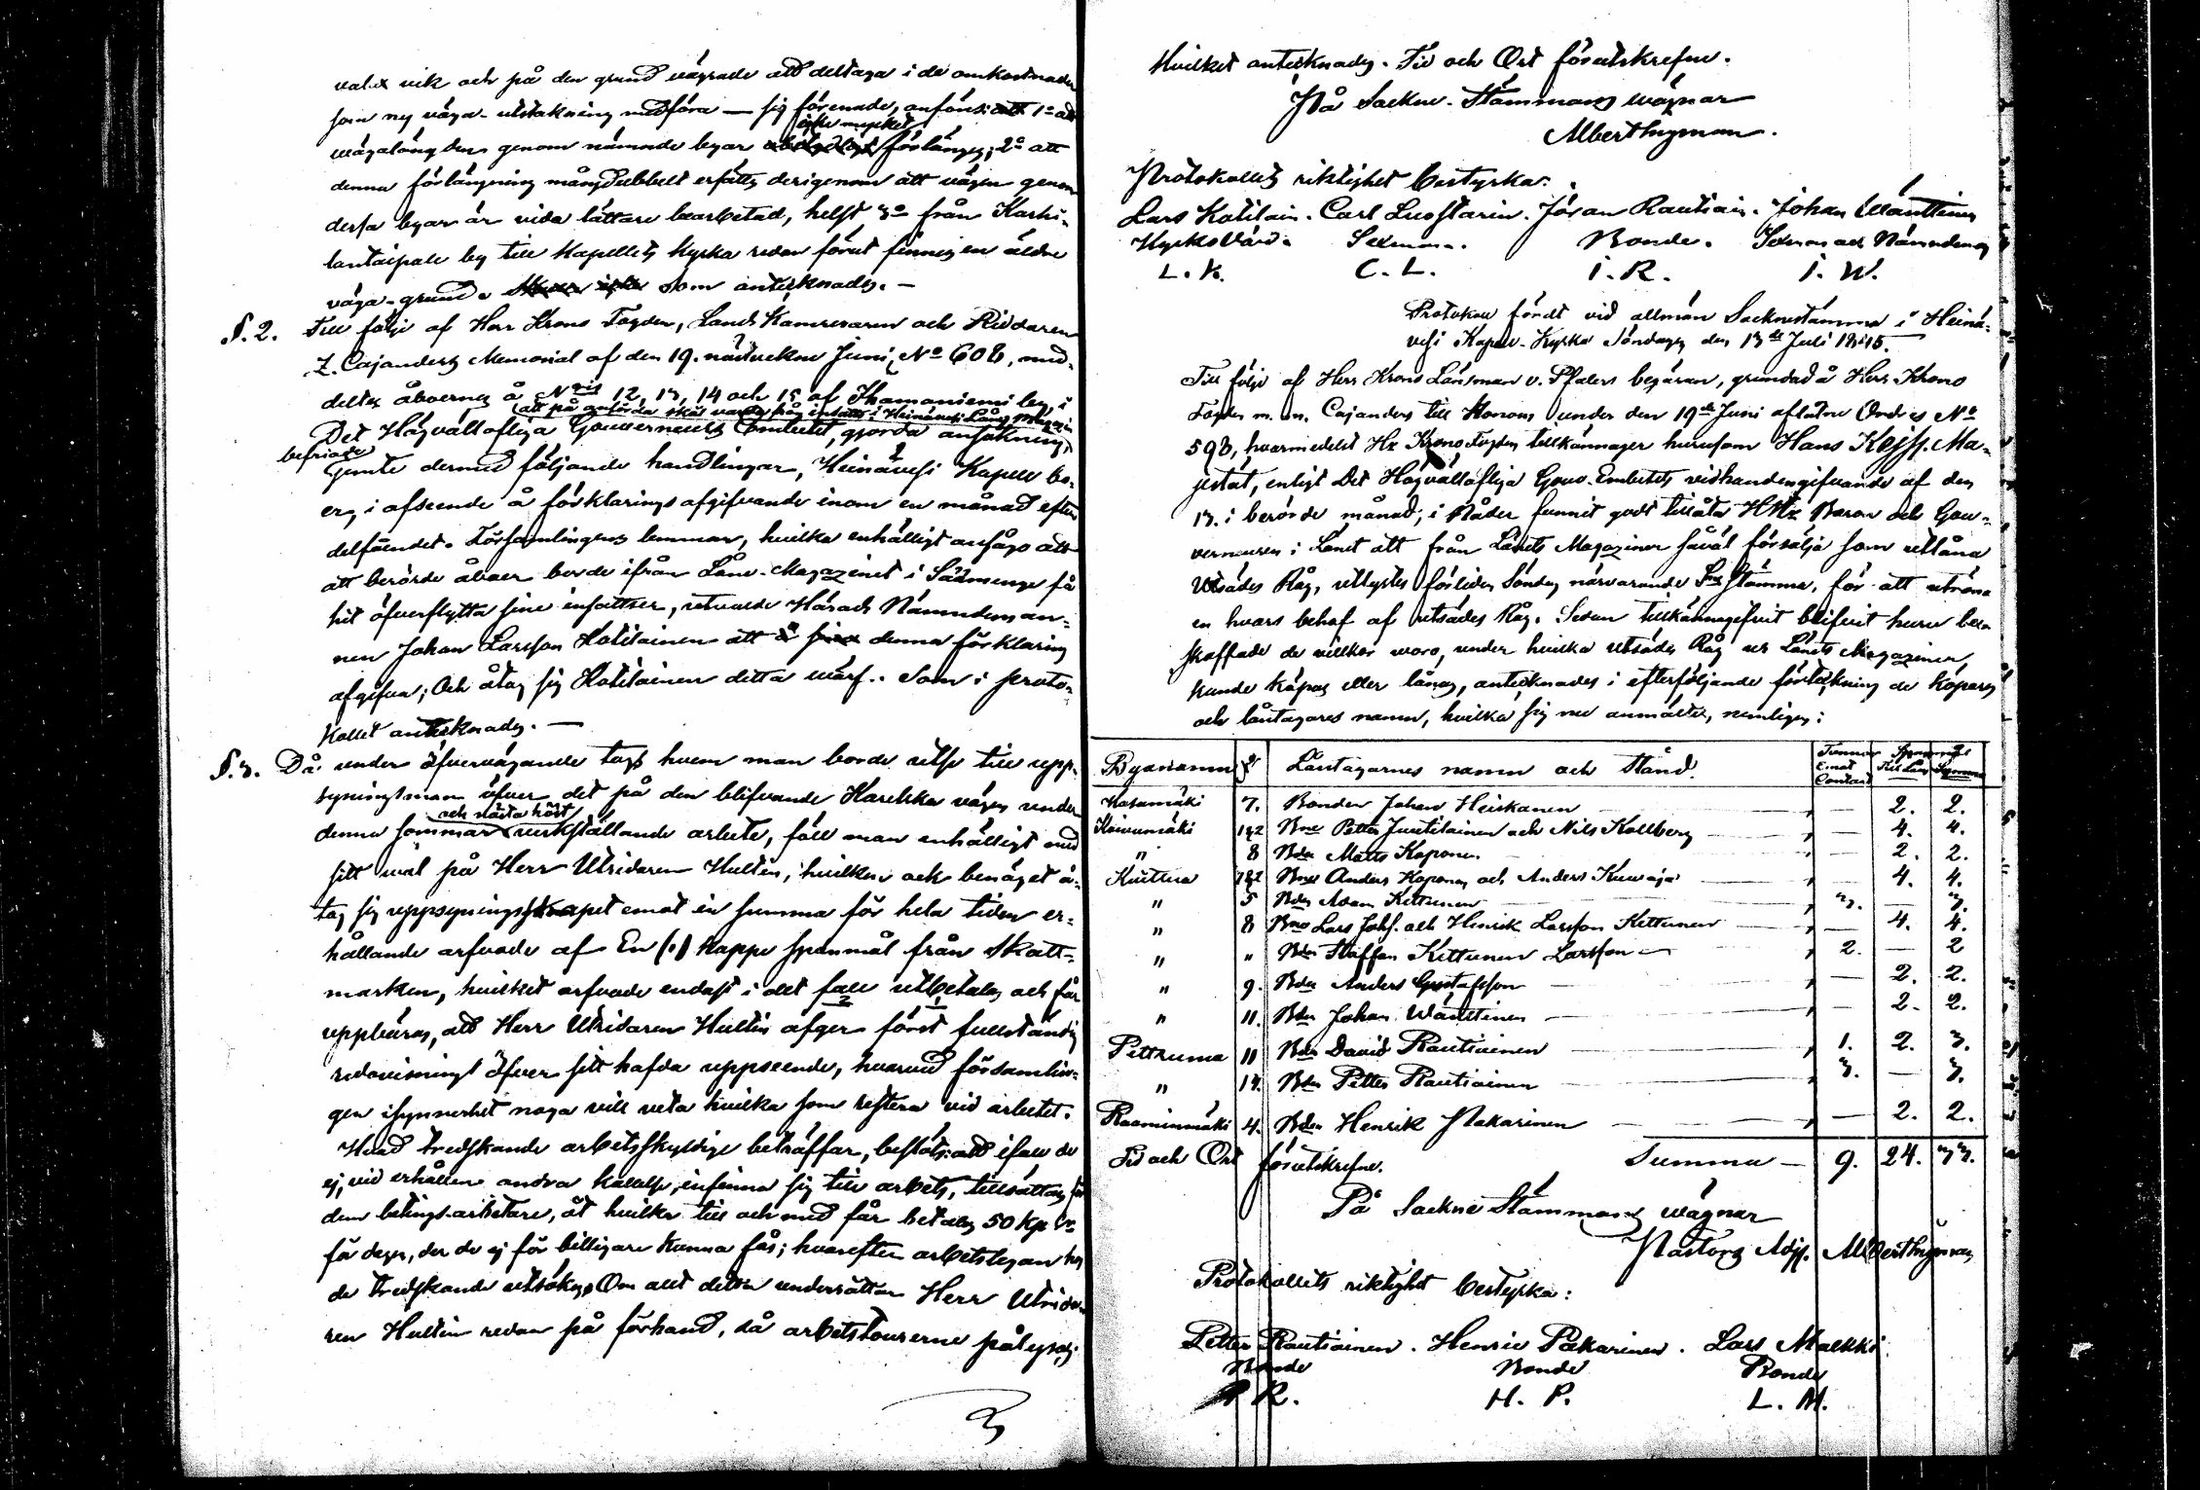 och på den grund vägrade att deltaga i de omkostnader
som ny väga-utstakning medföra — sig förenade, anförs: 1º att
icke mycket
wägalängden genom nämnde byar förlänges; 2º att
denna förlängning mångdubbelt ersättes derigenom att vägen genom
dessa byar är vida lättare bearbetad, helst 3º från Karhi-
lantaipale by till Kapellets kyrka redan förut finnes en äldre
väga-grund som antecknades. —
§. 2. Till följe af Herr Krono Fogden, Lands Kamreraren och Riddaren
Z. Cajanders Memorial af den 19. nästvekne Junii, Nº 608, med-
deltes åboerne å Nris 12, 13, 14 och 15 af Ihamaniemi by, i
att på anförda skäl varda från insatser i Heinävesi Låne Magazin
Det Högvällofliga Gouvernements Embetet, gjorda ansökning,
befriade
Gemte dermed följande handlingar, Heinävesi Kapell bo-
er, i afseende å förklarings afgifvande inom en månad efter
delfåendet. Församlingens lemmar, hvilka enhälligt ansågo att
att berörde åboer borde ifrån Låne-Magazinet i Sääminge få
hit öfverflytta sine insatser, utvalde Härads Nämndeman-
nen Johan Larsson Hotilainen att denna förklaring
afgifva; Och åtog sig Hotilainen detta värf. Som i proto-
kollet antecknades. —
§. 3. Då under öfvervägande togs hvem man borde utse till upp-
syningsman öfver det på den blifvande Karelska vägen under
och nästa höst
denna sommar verkställande arbete, föll man enhälligt med
sitt val på Herr Utridaren Hultin, hvilken ock benäget å-
tog sig uppsyningsskapet emot en summa för hela tiden er-
hållande arfvode af En (1) kappe spanmål från skatt-
marken, hvilket arfvode endast i det fall utbetalas och får
uppbäras, att Herr Utridaren Hultin afger först fullständig
redovisning öfver sitt hafda uppseende, hvarvid församlin-
gen isynnerhet noga vill veta hvilka som restera vid arbetet.
Hvad tredskande arbetsskyldige beträffar, beslöts: att ifall de
ej, vid erhållen andra kallelse, infinna sig till arbets, tillsättas för
dem betings-arbetare, åt hvilka till och med får betalas 50 Kop. Sr
för dagen, der de ej för billigare kunna fås; hvarefter arbetslegan hos
de tredskande utsökes. Om allt detta underrättar Herr Utrida-
ren Hultin redan på förhand, då arbetstourerne pålyses;
Hvilket antecknades. Tid och Ort förutskrefne.
På Sockne-Stämmans wägnar
Albert Nyman.
Protokollets riktighet bestyrka:
Lars Kotilain. Carl Luostarin. Jöran Rautiain. Johan Wänttinen
Kyrkovärd. Sexman. Bonde. Sexman och Nämndeman
L. K. C. L. I. R. I. W.
Protokoll fördt vid allmän Socknestämma i Heinä-
vesi Kapell-Kyrka Söndagen den 13de Julii 1845.
Till följe af Herr Krono Länsman v. Pfalers begäran, grundad å Herr Krono
Fogden m. m. Cajanders till Honom under den 19de Junii aflåtne Ordres Nº
598, hvarmedelst Hr Krono Fogden tillkännager hurusom Hans Kejss. Ma-
jestät, enligt Det Högvällofliga Gouv. Embetets vidhandengifvande af den
13. i berörde månad, i Nåder funnit godt tillåta HHr Baron och Gou-
verneuren i Länet att från Länets Magaziner såväl försälja som utlåna
Utsädes Råg, utlystes förliden Söndag närvarande Stämma, för att utröna
en hvars behof af utsädes Råg. Sedan tillkännagifvit blifvit huru be-
skaffade de villkor woro, under hvilka utsädes Råg ur Länets Magaziner
kunde köpas eller lånas, antecknades i efterföljande förteckning de köpares
och låntagares namn, hvilka sig nu anmälte, nemligen:
Byanamn Nº Låntagarnes namn och stånd. Tunnor Emot Contant Till Lån Summa
Hasumäki 7. Bonden Johan Heiskanen — 2. 2.
Koivumäki 1&2 Bne Petter Juutilainen och Nils Kollberg — 4. 4.
" 8 Bden Matts Koponen — 2. 2.
Kuittua 1&2 Bne Anders Koponen och Anders — 4. 4.
" 5 Bden Adam Kettunen 3. — 3.
" 8 Bne Lars Johs. och Henrik Larsson Kettunen — 4. 4.
" " Bden Staffan Kettunen Larsson 2. — 2
" 9. Bden Anders Gustafsson — 2. 2.
" 11. Bden Johan Wänttinen — 2. 2.
Petruma 11 Bden David Rautiainen 1. 2. 3.
" 14. Bden Petter Rautiainen 3. — 3.
Raaminmäki 4. Bden Henrik Pakarinen — 2. 2.
Tid och Ort förutskrefne. Summa — 9. 24. 33.
På Sockne Stämmans wägnar
Pastors Adj. Albert Nyman
Protokollets riktighet bestyrka:
Petter Rautiainen. Henric Pakarinen. Lars Malkki.
Bonde Bonde Bonde
P. R. H. P. L. M.